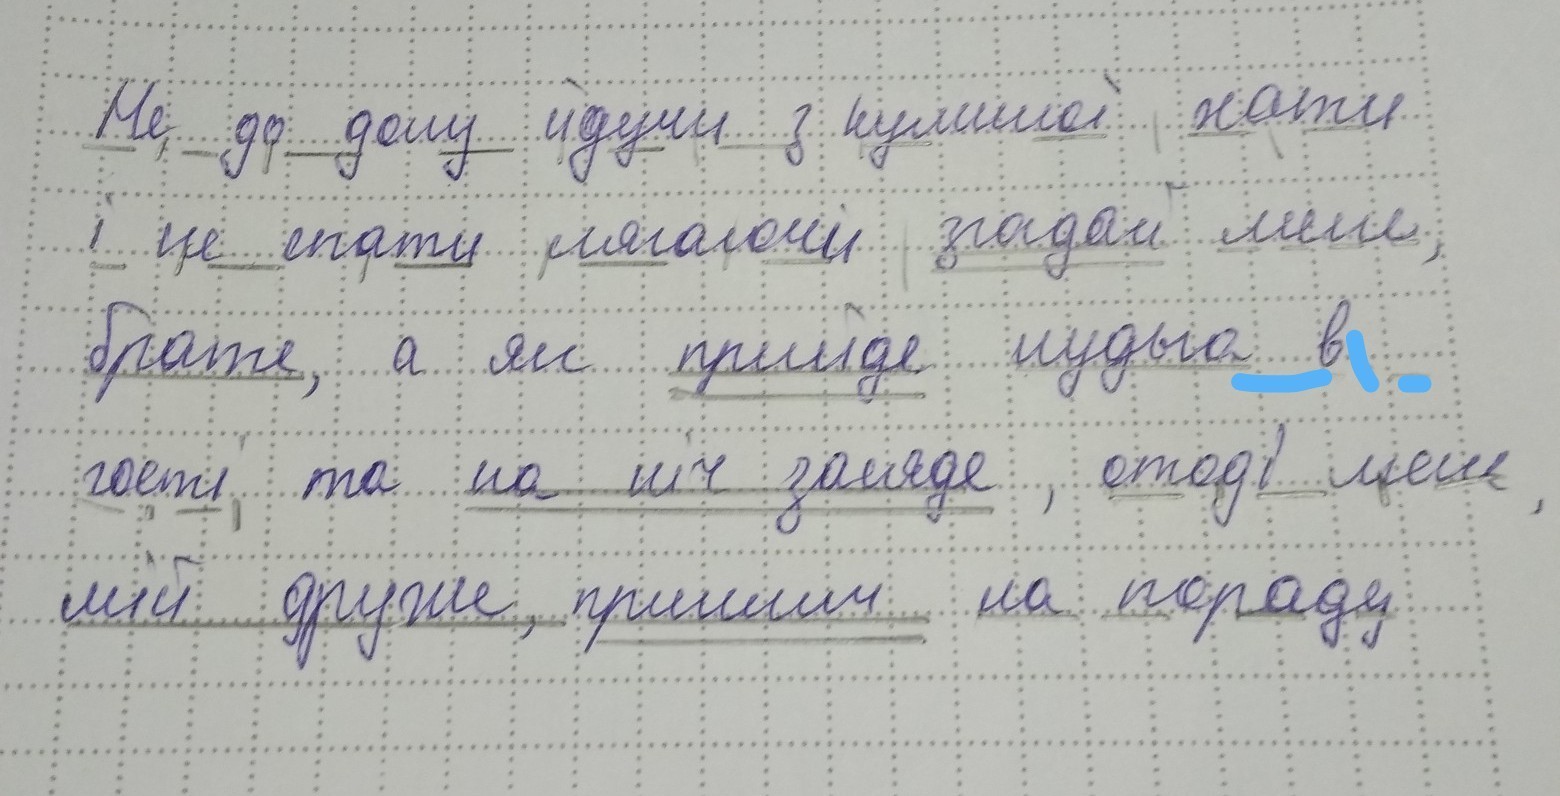 Не до дому йдучи з кумишої хати
і не спати лягаючи згадай мене,
брате, а як прийде нудьга в
гості, та на ніч засяде, отоді мене,
мій друже,приклич на пораду